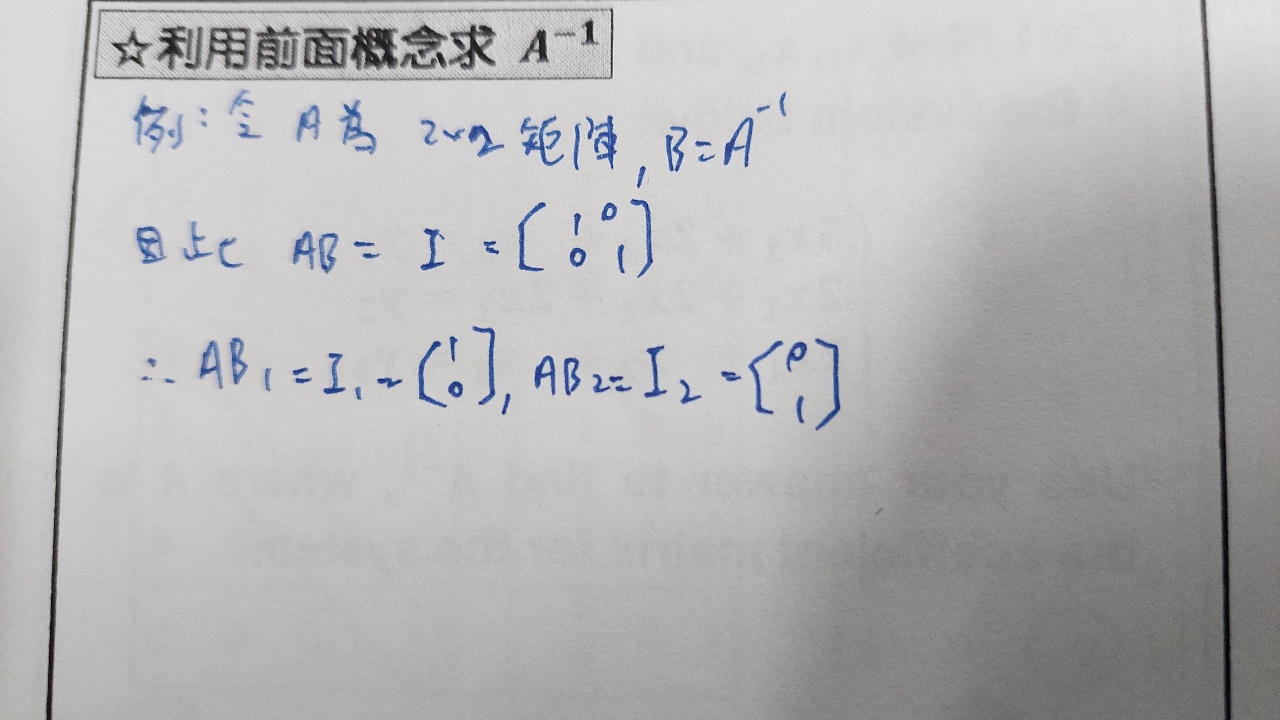 ☆利用前面概念求 A⁻¹
例:令 A為 2×2 矩陣, B=A⁻¹
因此 AB = I = [1 0 0 1]
∴ AB₁ = I₁ = [1 0], AB₂ = I₂ = [0 1]